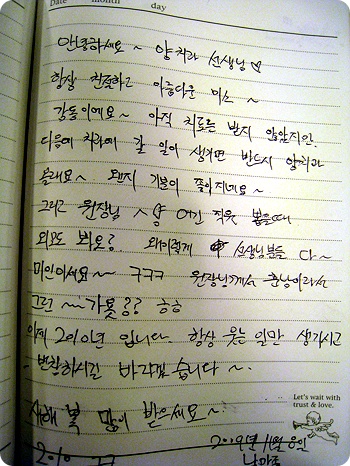 Date month day
안녕하세요~ 양치과 선생님♡
항상 친절하고 아름다운 미소~
감동이예요~ 아직 치료는 받지 않았지만.
다음에 치과에 갈 일이 생기면 반드시 양치과
올래요~ 왠지 기분이 좋아지네요~
그리고 원장님 사랑 여긴 직원 뽑을때
외모도 봐요? 왜이렇게 선생님분들 다~
미인이세요~~ ㅋㅋㅋ 원장님께서 훈남이라서
그런 ~~가봐?? ㅎㅎ
이제 2010년 입니다. 항상 웃는 일만 생기시고
번창하시길 바라겠습니다~.
새해 복 많이 받으세요~
Let's wait with
trust & love.